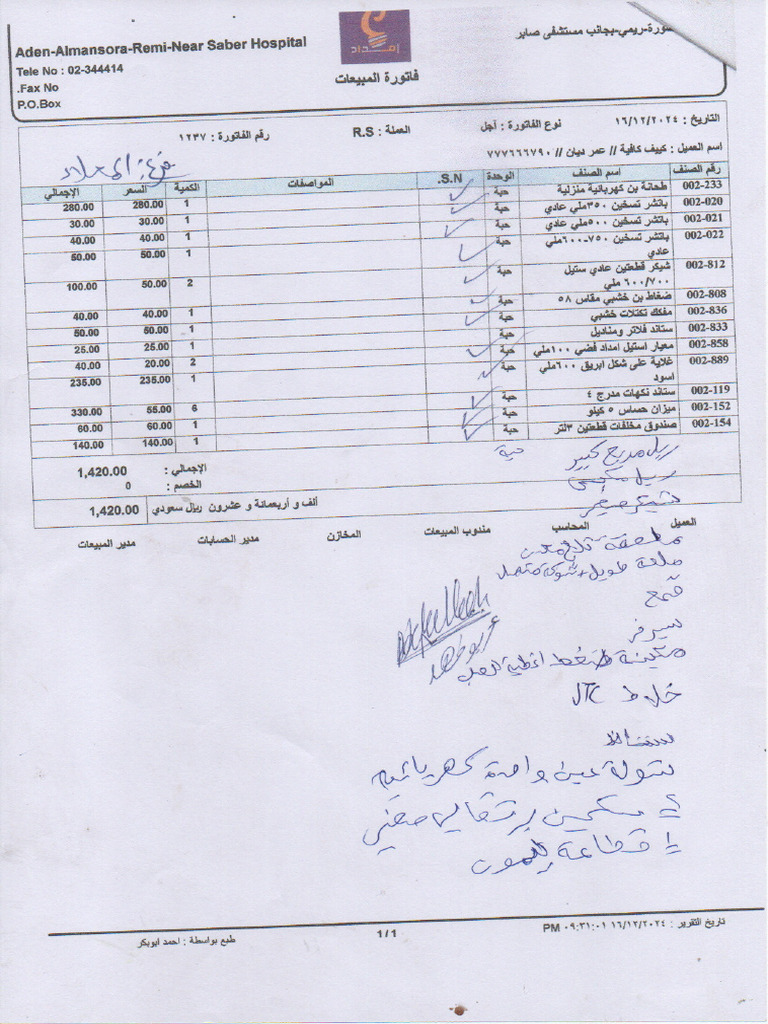 Aden-Almansora-Remi-Near Saber Hospital
Tele No : 02-344414
.Fax No
P.O.Box
إمداد
سورة-ريمي-بجانب مستشفى صابر
فاتورة المبيعات
التاريخ : ١٦/١٢/٢٠٢٤ نوع الفاتورة : آجل العملة : R.S رقم الفاتورة : ١٢٣٧
اسم العميل : كييف كافية // عمر ديان // ٧٧٧٦٦٦٧٩٠
فرع المعلا
رقم الصنف اسم الصنف الوحدة S.N. المواصفات الكمية السعر الإجمالي
002-233 طحانة بن كهربائية منزلية حبة 1 280.00 280.00
002-020 باتشر تسخين ٣٥٠ملي عادي حبة 1 30.00 30.00
002-021 باتشر تسخين ٥٠٠ملي عادي حبة 1 40.00 40.00
002-022 باتشر تسخين ٧٥٠-٦٠٠ملي عادي حبة 1 50.00 50.00
002-812 شيكر قطعتين عادي ستيل ٦٠٠/٧٠٠ ملي حبة 2 50.00 100.00
002-808 ضغاط بن خشبي مقاس ٥٨ حبة 1 40.00 40.00
002-836 مفكك تكتلات خشبي حبة 1 50.00 50.00
002-833 ستاند فلاتر ومناديل حبة 1 25.00 25.00
002-858 معيار استيل امداد فضي ١٠٠ملي حبة 2 20.00 40.00
002-889 غلاية على شكل ابريق ٦٠٠ملي اسود حبة 1 235.00 235.00
002-119 ستاند نكهات مدرج ٤ حبة 6 55.00 330.00
002-152 ميزان حساس ٥ كيلو حبة 1 60.00 60.00
002-154 صندوق مخلفات قطعتين ٣لتر حبة 1 140.00 140.00
الإجمالي : 1,420.00
الخصم : 0
ألف و أربعمائة و عشرون ريال سعودي 1,420.00
العميل المحاسب مندوب المبيعات المخازن مدير الحسابات مدير المبيعات
حبة
كبير
قمع
سيرفر
خلاط JTC
تولة عين واحدة كهربائية
سكين برتقالي صيني
قطاعة ليمون
تاريخ التقرير : ١٦/١٢/٢٠٢٤ ٠٩:٣١:٠١ PM
1 / 1
طبع بواسطة : احمد ابوبكر